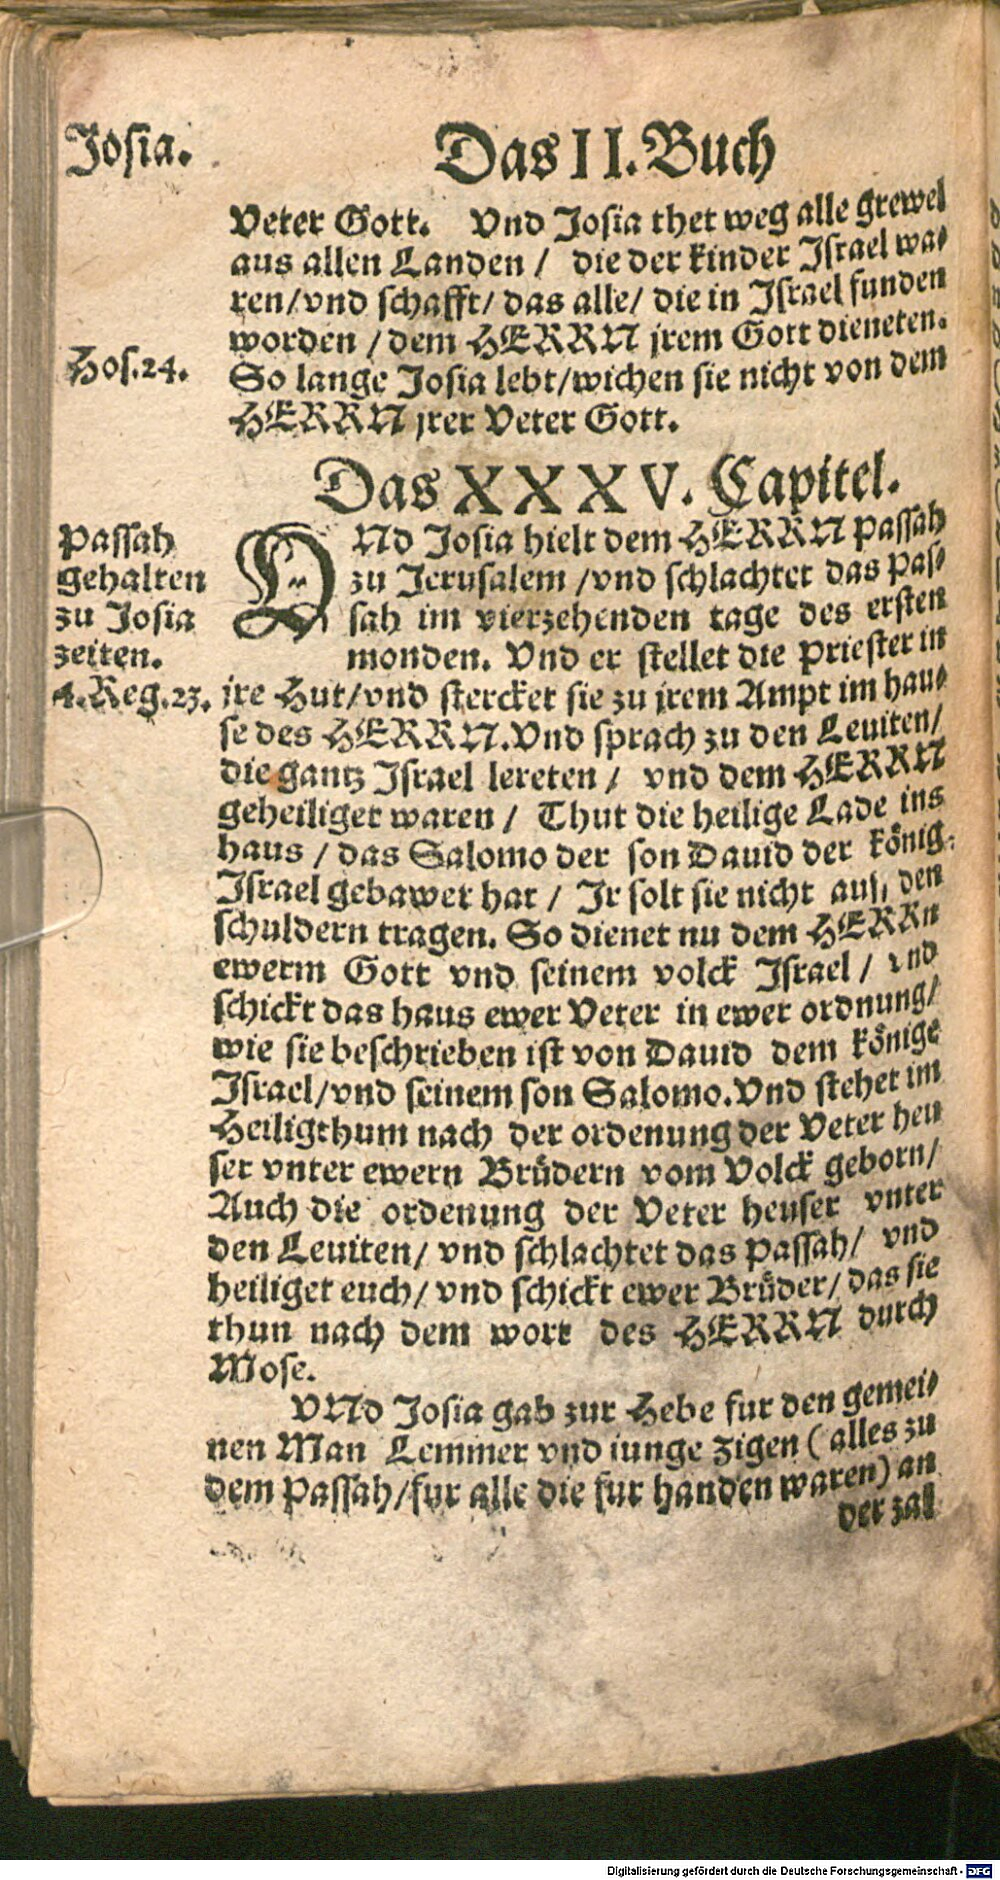 Josia.
Das II. Buch
Veter Gott. Vnd Josia thet weg alle grewel
aus allen Landen / die der kinder Israel wa-
ren/vnd schafft/ das alle/ die in Israel funden
worden / dem HERRN jrem Gott dieneten.
Hos.24.
So lange Josia lebt/wichen sie nicht von dem
HERRN jrer Veter Gott.
Das XXXV. Capitel.
Passah
gehalten
zu Josia
zeiten.
4.Reg.23.
VNd Josia hielt dem HERRN Passah
zu Jerusalem /vnd schlachtet das Pas-
sah im vierzehenden tage des ersten
monden. Vnd er stellet die Priester in
jre Hut/vnd stercket sie zu jrem Ampt im hau-
se des HERRN.Vnd sprach zu den Leuiten/
die gantz Israel lereten / vnd dem HERRN
geheiliget waren / Thut die heilige Lade ins
haus / das Salomo der son Dauid der König
Israel gebawet hat / Ir solt sie nicht auff den
schuldern tragen. So dienet nu dem HERRn
ewerm Gott vnd seinem volck Israel / vnd
schickt das haus ewer Veter in ewer ordnung/
wie sie beschrieben ist von Dauid dem Könige
Israel/vnd seinem son Salomo.Vnd stehet im
Heiligthum nach der ordenung der Veter heu
ser vnter ewern Brüdern vom Volck geborn/
Auch die ordenung der Veter heuser vnter
den Leuiten/ vnd schlachtet das Passah/ vnd
heiliget euch/ vnd schickt ewer Brüder/ das sie
thun nach dem wort des HERRN durch
Mose.
VNd Josia gab zur Hebe fur den gemei-
nen Man Lemmer vnd iunge Zigen ( alles zu
dem Passah/fur alle die fur handen waren) an
der zal
Digitalisierung gefördert durch die Deutsche Forschungsgemeinschaft - DFG